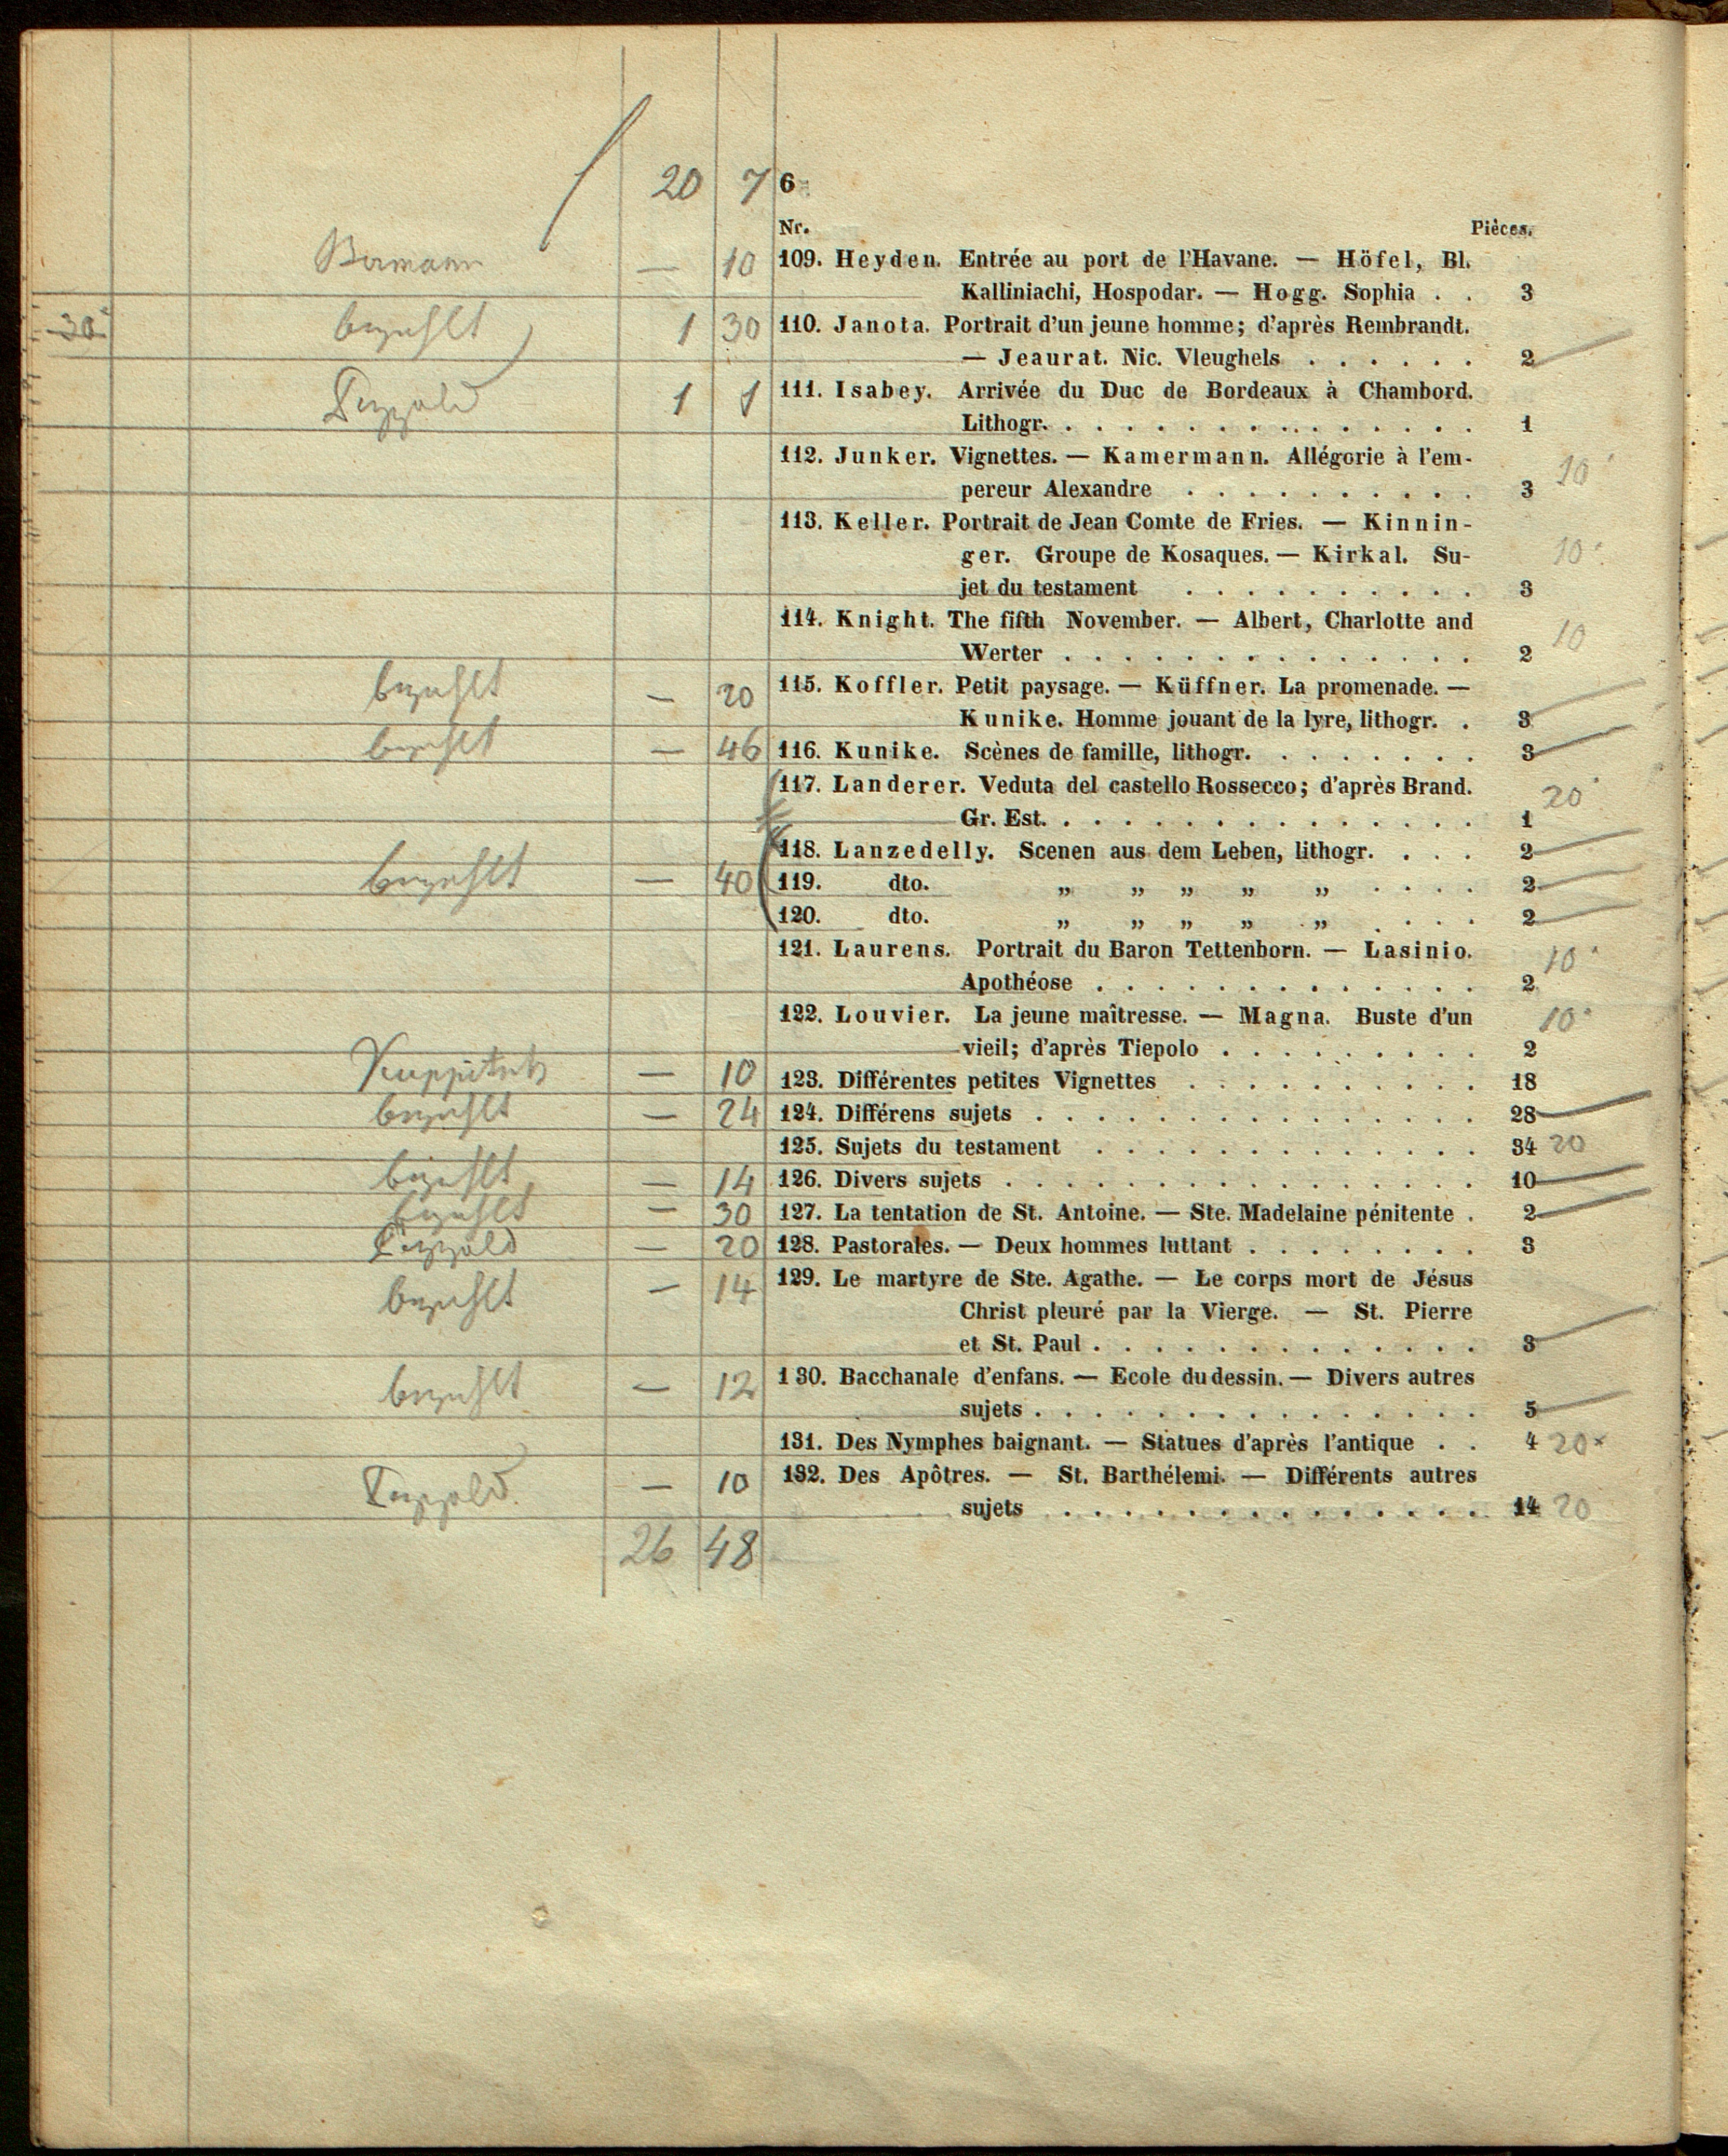 20 7 6
Nr. Pièces.
Bermann — 10 109. Heyden. Entrée au port de l'Havane. — Höfel, Bl.
Kalliniachi, Hospodar. — Hogg. Sophia . . 3
30 bezahlt 1 30 110. Janota. Portrait d'un jeune homme; d'après Rembrandt.
— Jeaurat. Nic. Vleughels . . . . . . 2
1 1 111. Isabey. Arrivée du Duc de Bordeaux à Chambord.
Lithogr. . . . . . . . . . . . . . . 1
112. Junker. Vignettes. — Kamermann. Allégorie à l'em- 10
pereur Alexandre . . . . . . . . . . 3
113. Keller. Portrait de Jean Comte de Fries. — Kinnin-
ger. Groupe de Kosaques. — Kirkal. Su- 10
jet du testament . . . . . . . . . . 3
114. Knight. The fifth November. — Albert, Charlotte and 10
Werter . . . . . . . . . . . . . . 2
bezahlt — 20 115. Koffler. Petit paysage. — Küffner. La promenade. —
Kunike. Homme jouant de la lyre, lithogr. . 3
bezahlt — 46 116. Kunike. Scènes de famille, lithogr. . . . . . . . 3
117. Landerer. Veduta del castello Rossecco; d'après Brand. 20
Gr. Est. . . . . . . . . . . . . . . 1
118. Lanzedelly. Scenen aus dem Leben, lithogr. . . . 2
bezahlt — 40 119. dto. „ „ „ „ „ . . . . 2
120. dto. „ „ „ „ „ . . . . 2
121. Laurens. Portrait du Baron Tettenborn. — Lasinio. 10
Apothéose . . . . . . . . . . . . . 2
122. Louvier. La jeune maîtresse. — Magna. Buste d'un 10
vieil; d'après Tiepolo . . . . . . . . . 2
Kuppitsch — 10 123. Différentes petites Vignettes . . . . . . . . . . 18
bezahlt — 24 124. Différens sujets . . . . . . . . . . . . . . . 28
125. Sujets du testament . . . . . . . . . . . . . 34 20
bezahlt — 14 126. Divers sujets . . . . . . . . . . . . . . . . 10
bezahlt — 30 127. La tentation de St. Antoine. — Ste. Madelaine pénitente . 2
— 20 128. Pastorales. — Deux hommes luttant . . . . . . . . 3
bezahlt — 14 129. Le martyre de Ste. Agathe. — Le corps mort de Jésus
Christ pleuré par la Vierge. — St. Pierre
et St. Paul . . . . . . . . . . . . . 3
bezahlt — 12 130. Bacchanale d'enfans. — Ecole du dessin. — Divers autres
sujets . . . . . . . . . . . . . . . 5
131. Des Nymphes baignant. — Statues d'après l'antique . . 4 20
— 10 132. Des Apôtres. — St. Barthélemi. — Différents autres
sujets . . . . . . . . . . . . . . 14 20
26 48